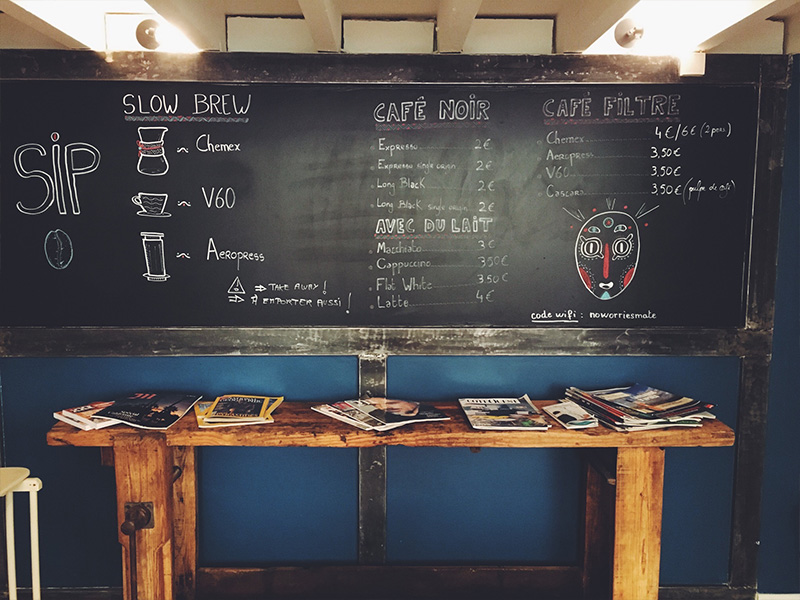 SiP
SLOW BREW
~ Chemex
~ V60
~ Aeropress
→ TAKE AWAY !
→ A EMPORTER AUSSI !
CAFÉ NOIR
Expresso 2€
Expresso single origin 2€
Long Black 2€
Long Black single origin 2€
AVEC DU LAIT
Macchiato 3€
Cappuccino 3,50€
Flat White 3,50€
Latte 4€
CAFÉ FILTRE
Chemex 4€/6€ (2 pers)
Aeropress 3,50€
V60 3,50€
Cascara 3,50€ (pulpe de café)
code wifi : noworriesmate